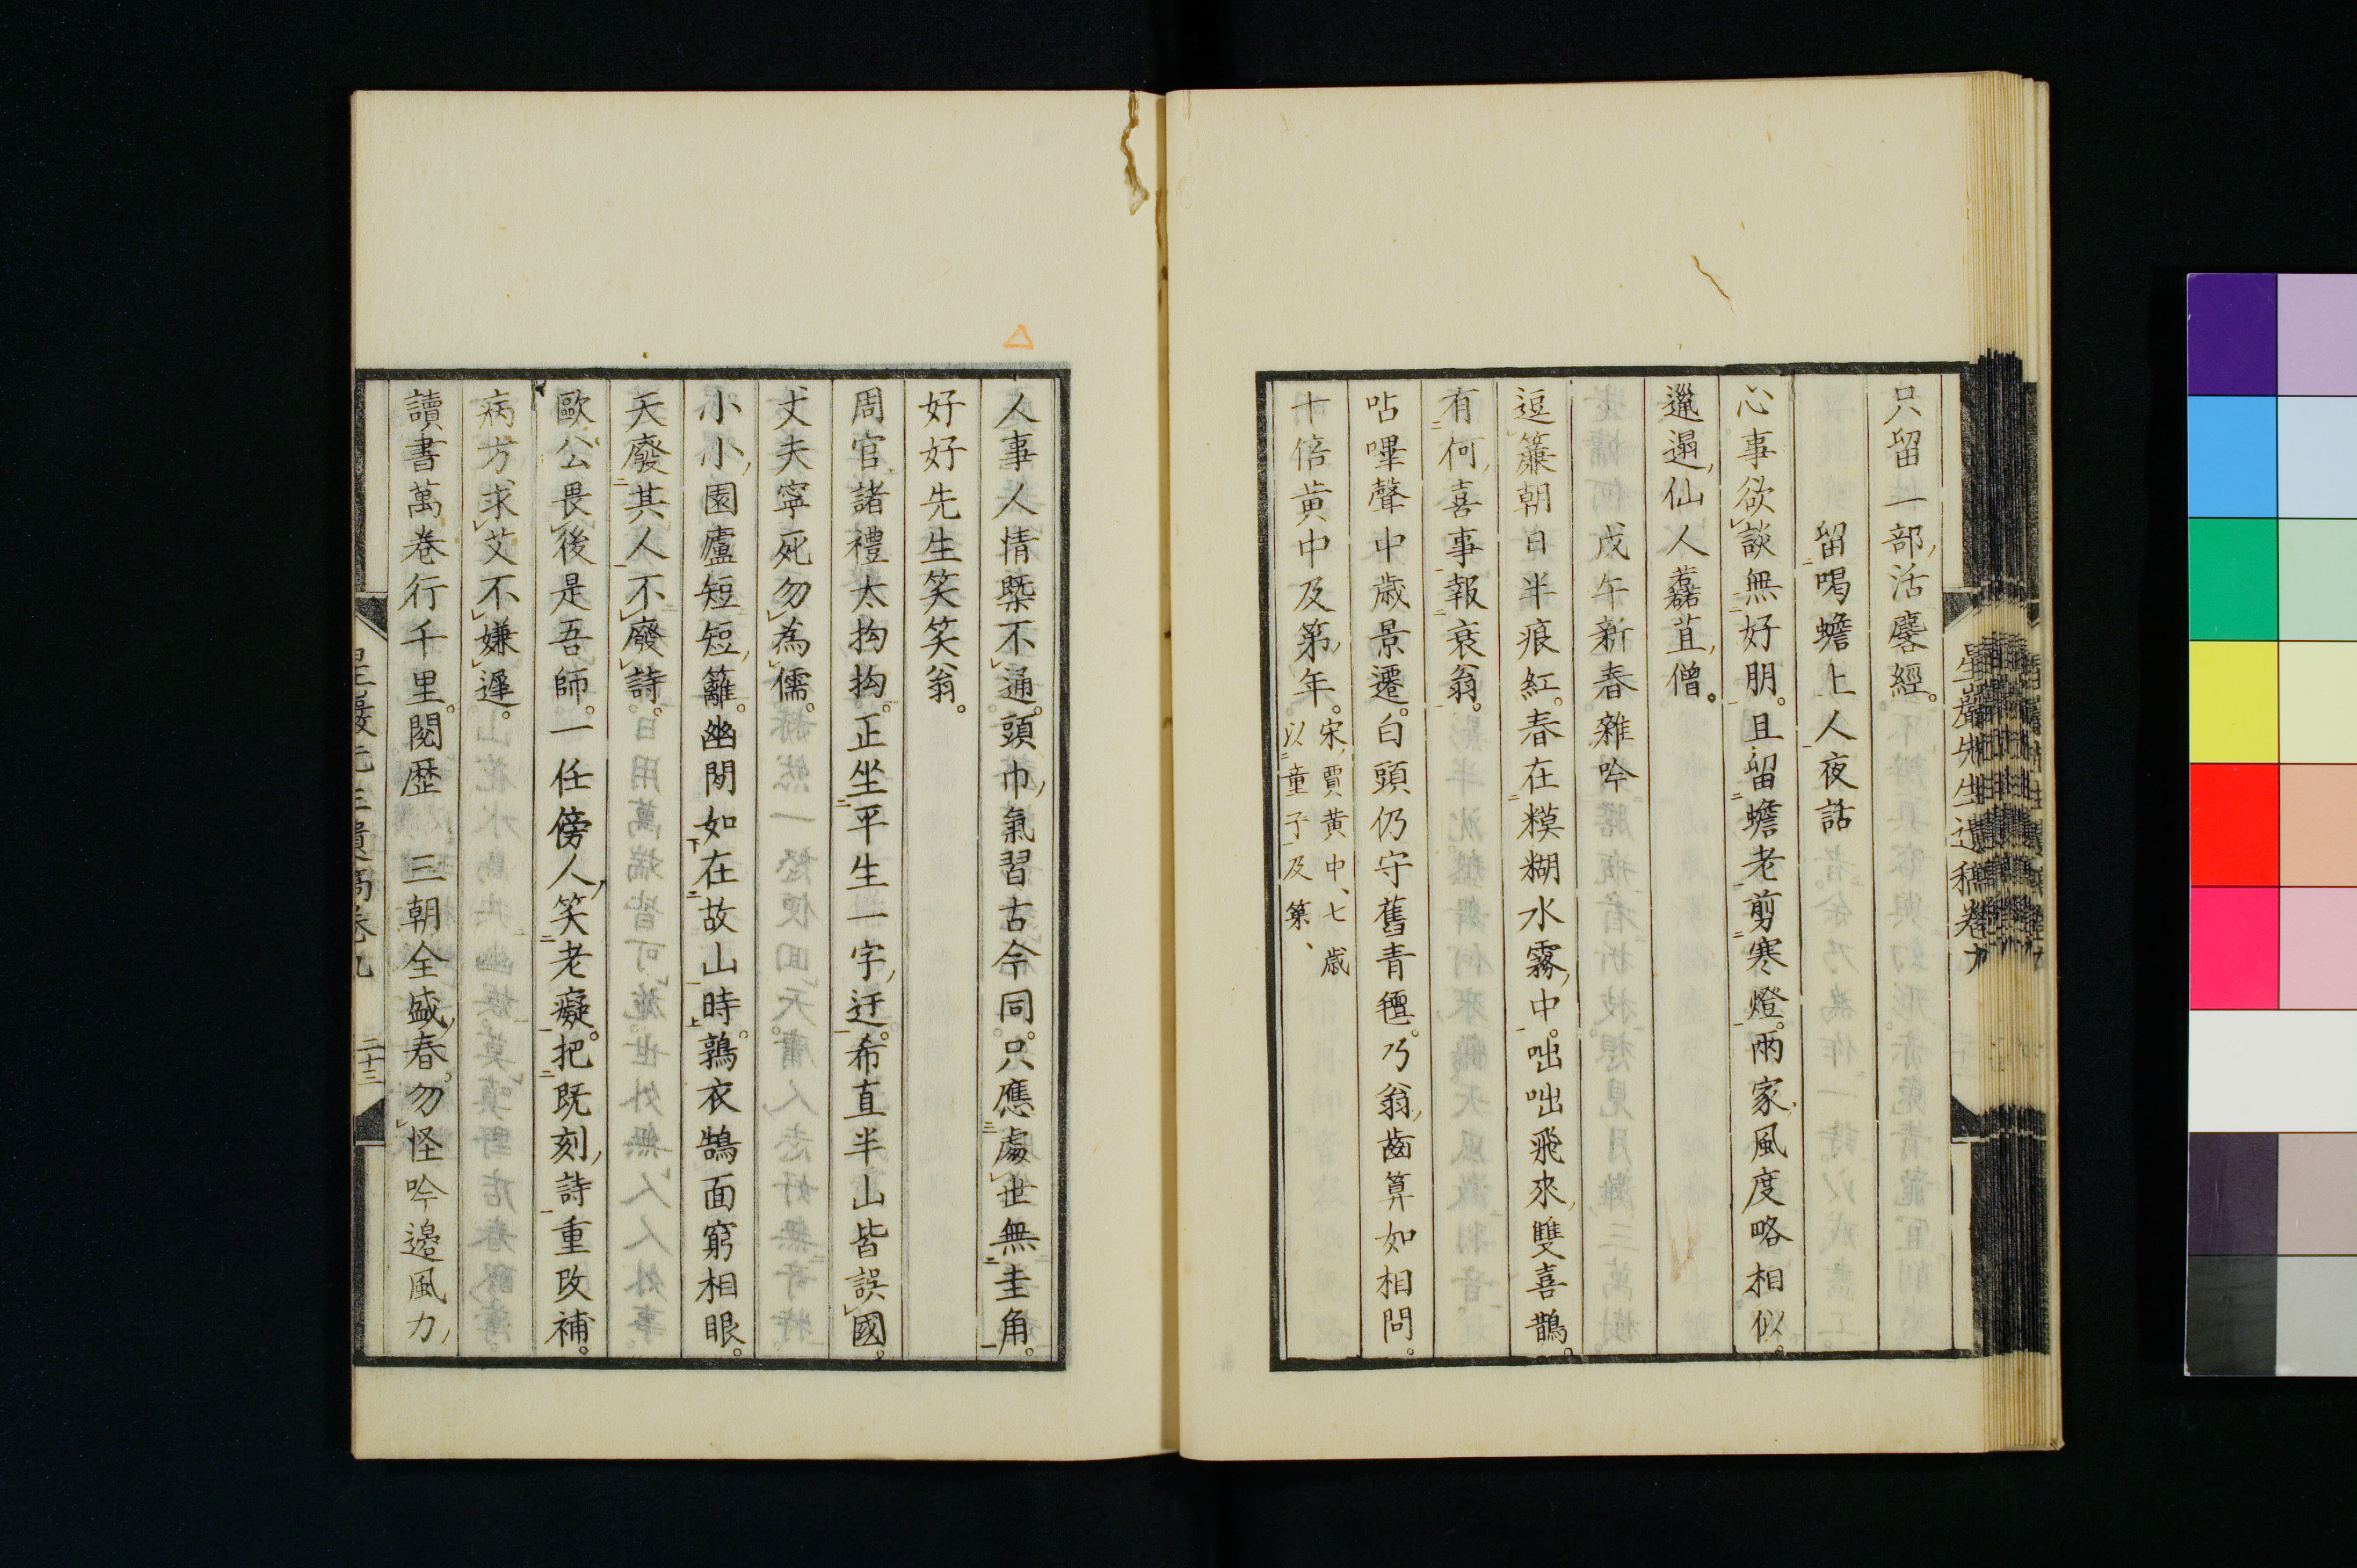 只留一部活麐經。
留喝蟾上人夜話
心事欲談無好朋。且留蟾老剪寒燈。兩家風度略相似。
邋遢仙人藞苴僧。
戊午新春雜吟
逗簾朝日半痕紅。春在糢糊水霧中。咄咄飛來雙喜鵲。
有何喜事報衰翁。
呫嗶聲中歲景遷。白頭仍守舊青氈。乃翁齒算如相問。
十倍黄中及第年。
宋賈黄中、七歲
以童子及第、
星巖先生遺稿卷九
人事人情槩不通。頭巾氣習古今同。只應處世無圭角。
好好先生笑笑翁。
周官諸禮太拘拘。正坐平生一字迂。希直半山皆誤國。
丈夫寧死勿為儒。
小小園廬短短籬。幽閒如在故山時。鶉衣鵠面窮相眼。
天廢其人不廢詩。
歐公畏後是吾師。一任傍人笑老癡。把既刻詩重改補。
病方求艾不嫌遲。
讀書萬卷行千里。閱歷 三朝全盛春。勿怪吟邊風力
二十三